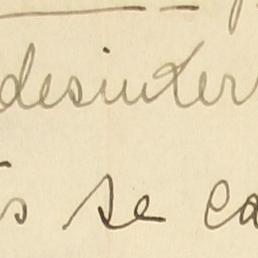 desinter
s se ca